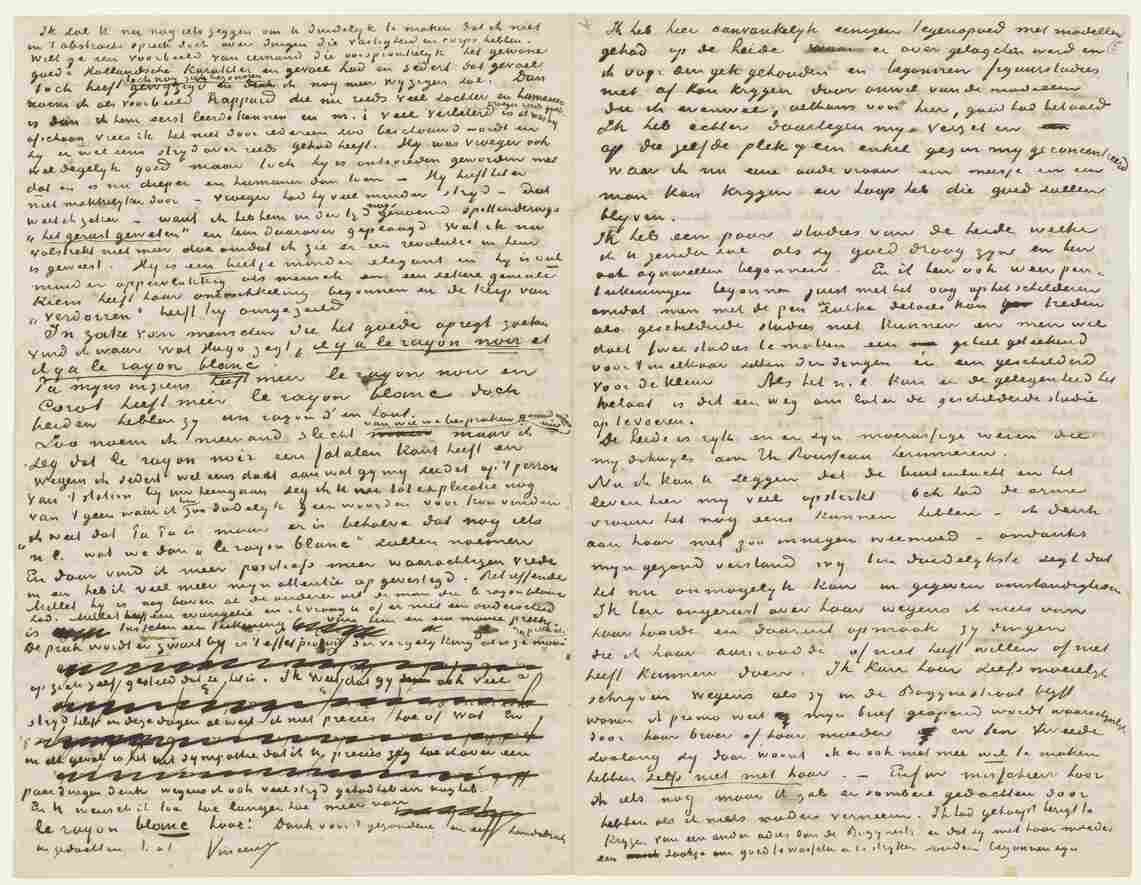 Ik zal U nu nog iets zeggen om U duidelijk te maken dat ik niet
in 't abstracte spreek doch over dingen die vastigheid en corps hebben.
Wilt ge een voorbeeld van iemand die oorspronkelijk het gewone
goede Hollandsche karakter en gevoel had en sedert dat gevoel
toch heeft gewyzigd en nog meer wyzigen zal. Dan
noem ik als voorbeeld Rappard die nu reeds veel zachter en humaner
is dan ik hem eerst leerde kennen en m.i. veel verbeterd is
ofschoon vrees ik het niet door iedereen zoo beschouwd wordt en
hy er wel eens stryd over reeds gehad heeft. Hy was vroeger ook
wel degelyk goed maar toch hy is ontevreden geworden met
dat en is nu dieper en humaner dan toen – Hy heeft het er
niet makkelyker door – vroeger had hy veel minder stryd – Dat
weet ik zeker – want ik heb hem in der tyd genoemd spottenderwys
„het gerust geweten” en hem daarover geplaagd wat ik nu
volstrekt niet meer doe omdat ik zie er een revolutie in hem
is geweest. Hy is een beetje minder elegant en hy is ook
minder oppervlakkig als mensch en een zekere geniale
kiem heeft haar ontwikkeling begonnen en de klip van
„verdorren” heeft hy omgezeild
In zake van menschen die het goede opregt zoeken
vind ik waar wat Hugo zegt, il y a le rayon noir et
il y a le rayon blanc.
Pa myns inziens heeft meer le rayon noir en
Corot heeft meer le rayon blanc doch
beiden hebben zy un rayon d'en haut.
van wie we bespraken
Zoo noem ik niemand slecht maar ik
zeg dat le rayon noir een fatalen kant heeft en
wegens ik sedert wel eens dacht aan wat gy my zeidet op 't perron
van 't station by uw heengaan zeg ik U nu tot explicatie nog
van 't geen waar ik toen duidelyk geen woorden voor kon vinden
„ik weet dat Pa Pa is maar er is behalve dat nog iets
n.l. wat we dan „le rayon blanc” zullen noemen
En daar vind ik meer positiefs meer waarachtigen vrede
in en heb ik veel meer myn attentie op gevestigd. Betreffende
Millet hy is nog boven al de anderen uit de man die le rayon blanc
had. Millet heeft een evangelie en ik vraag U of er niet een onderscheid
is tusschen een teekening van hem en een mooie preek
De preek wordt er zwart by
op zich zelf gesteld dat ze is. Ik weet dat gy ook veel
stryd hebt in deze dagen al weet ik niet precies hoe of wat En
in elk geval is het uit sympathie dat ik U precies zeg hoe ik over een
paar dingen denk wegens ik ook veel stryd gehad heb en nog heb.
En U wensch ik toe hoe langer hoe meer van
le rayon blanc hoor! Dank voor 't gezondene en een handdruk
in gedachten t. à t. Vincent
Ik heb hier aanvankelyk eenigen tegenspoed met modellen
gehad op de heide er over gelagchen werd en
ik voor den gek gehouden en begonnen figuurstudies
niet af kon krygen door onwil van de modellen
die ik evenwel, althans voor hier, goed had betaald
Ik heb echter daartegen my verzet en
op die zelfde plek op een enkel gezin my geconcentreerd
waar ik nu eene oude vrouw een meisje en een
man kan krygen en hoop heb die goed zullen
blyven.
Ik heb een paar studies van de heide welke
ik U zenden zal als zy goed droog zyn en ben
ook aquarellen begonnen. En ik ben ook weer pen-
teekeningen begonnen juist met het oog op het schilderen
omdat men met de pen zulke details kan treden
als geschilderde studies niet kunnen en men wel
doet twee studies te maken een geheel geteekend
voor 't in elkaar zetten der dingen en een geschilderd
voor de kleur. Als het n.l. kan en de gelegenheid het
toelaat is dit een weg om later de geschilderde studie
op te voeren.
De heide is ryk en er zyn moerassige weien die
my dikwyls aan Th Rousseau herinneren.
Nu ik kan U zeggen dat de buitenlucht en het
leven hier my veel opsterkt Och had de arme
vrouw het nog eens kunnen hebben – ik denk
aan haar met zoo innigen weemoed – ondanks
myn gezond verstand my ten duidelykste zegt dat
het nu onmogelyk kan in gegeven omstandigheden
Ik ben ongerust over haar wegens ik niets van
haar hoorde en daaruit opmaak zy dingen
die ik haar aanraadde of niet heeft willen of niet
heeft kunnen doen. Ik kan haar zelfs moeielyk
schryven wegens als zy in de Bagynestraat blyft
wonen ik primo weet myn brief geopend wordt waarschynlyk
door haar broer of haar moeder en ten tweede
zoolang zy daar woont ik er ook niet mee wil te maken
hebben zelfs niet met haar. – Enfin misschien hoor
ik iets nog maar U zal er sombere gedachten door
hebben als ik niets nader verneem. Ik had gehoopt berigt te
krygen van een ander adres dan de Bagynestr en dat zy met haar moeder
een zaakje om goed te wasschen en te stryken zouden begonnen zyn